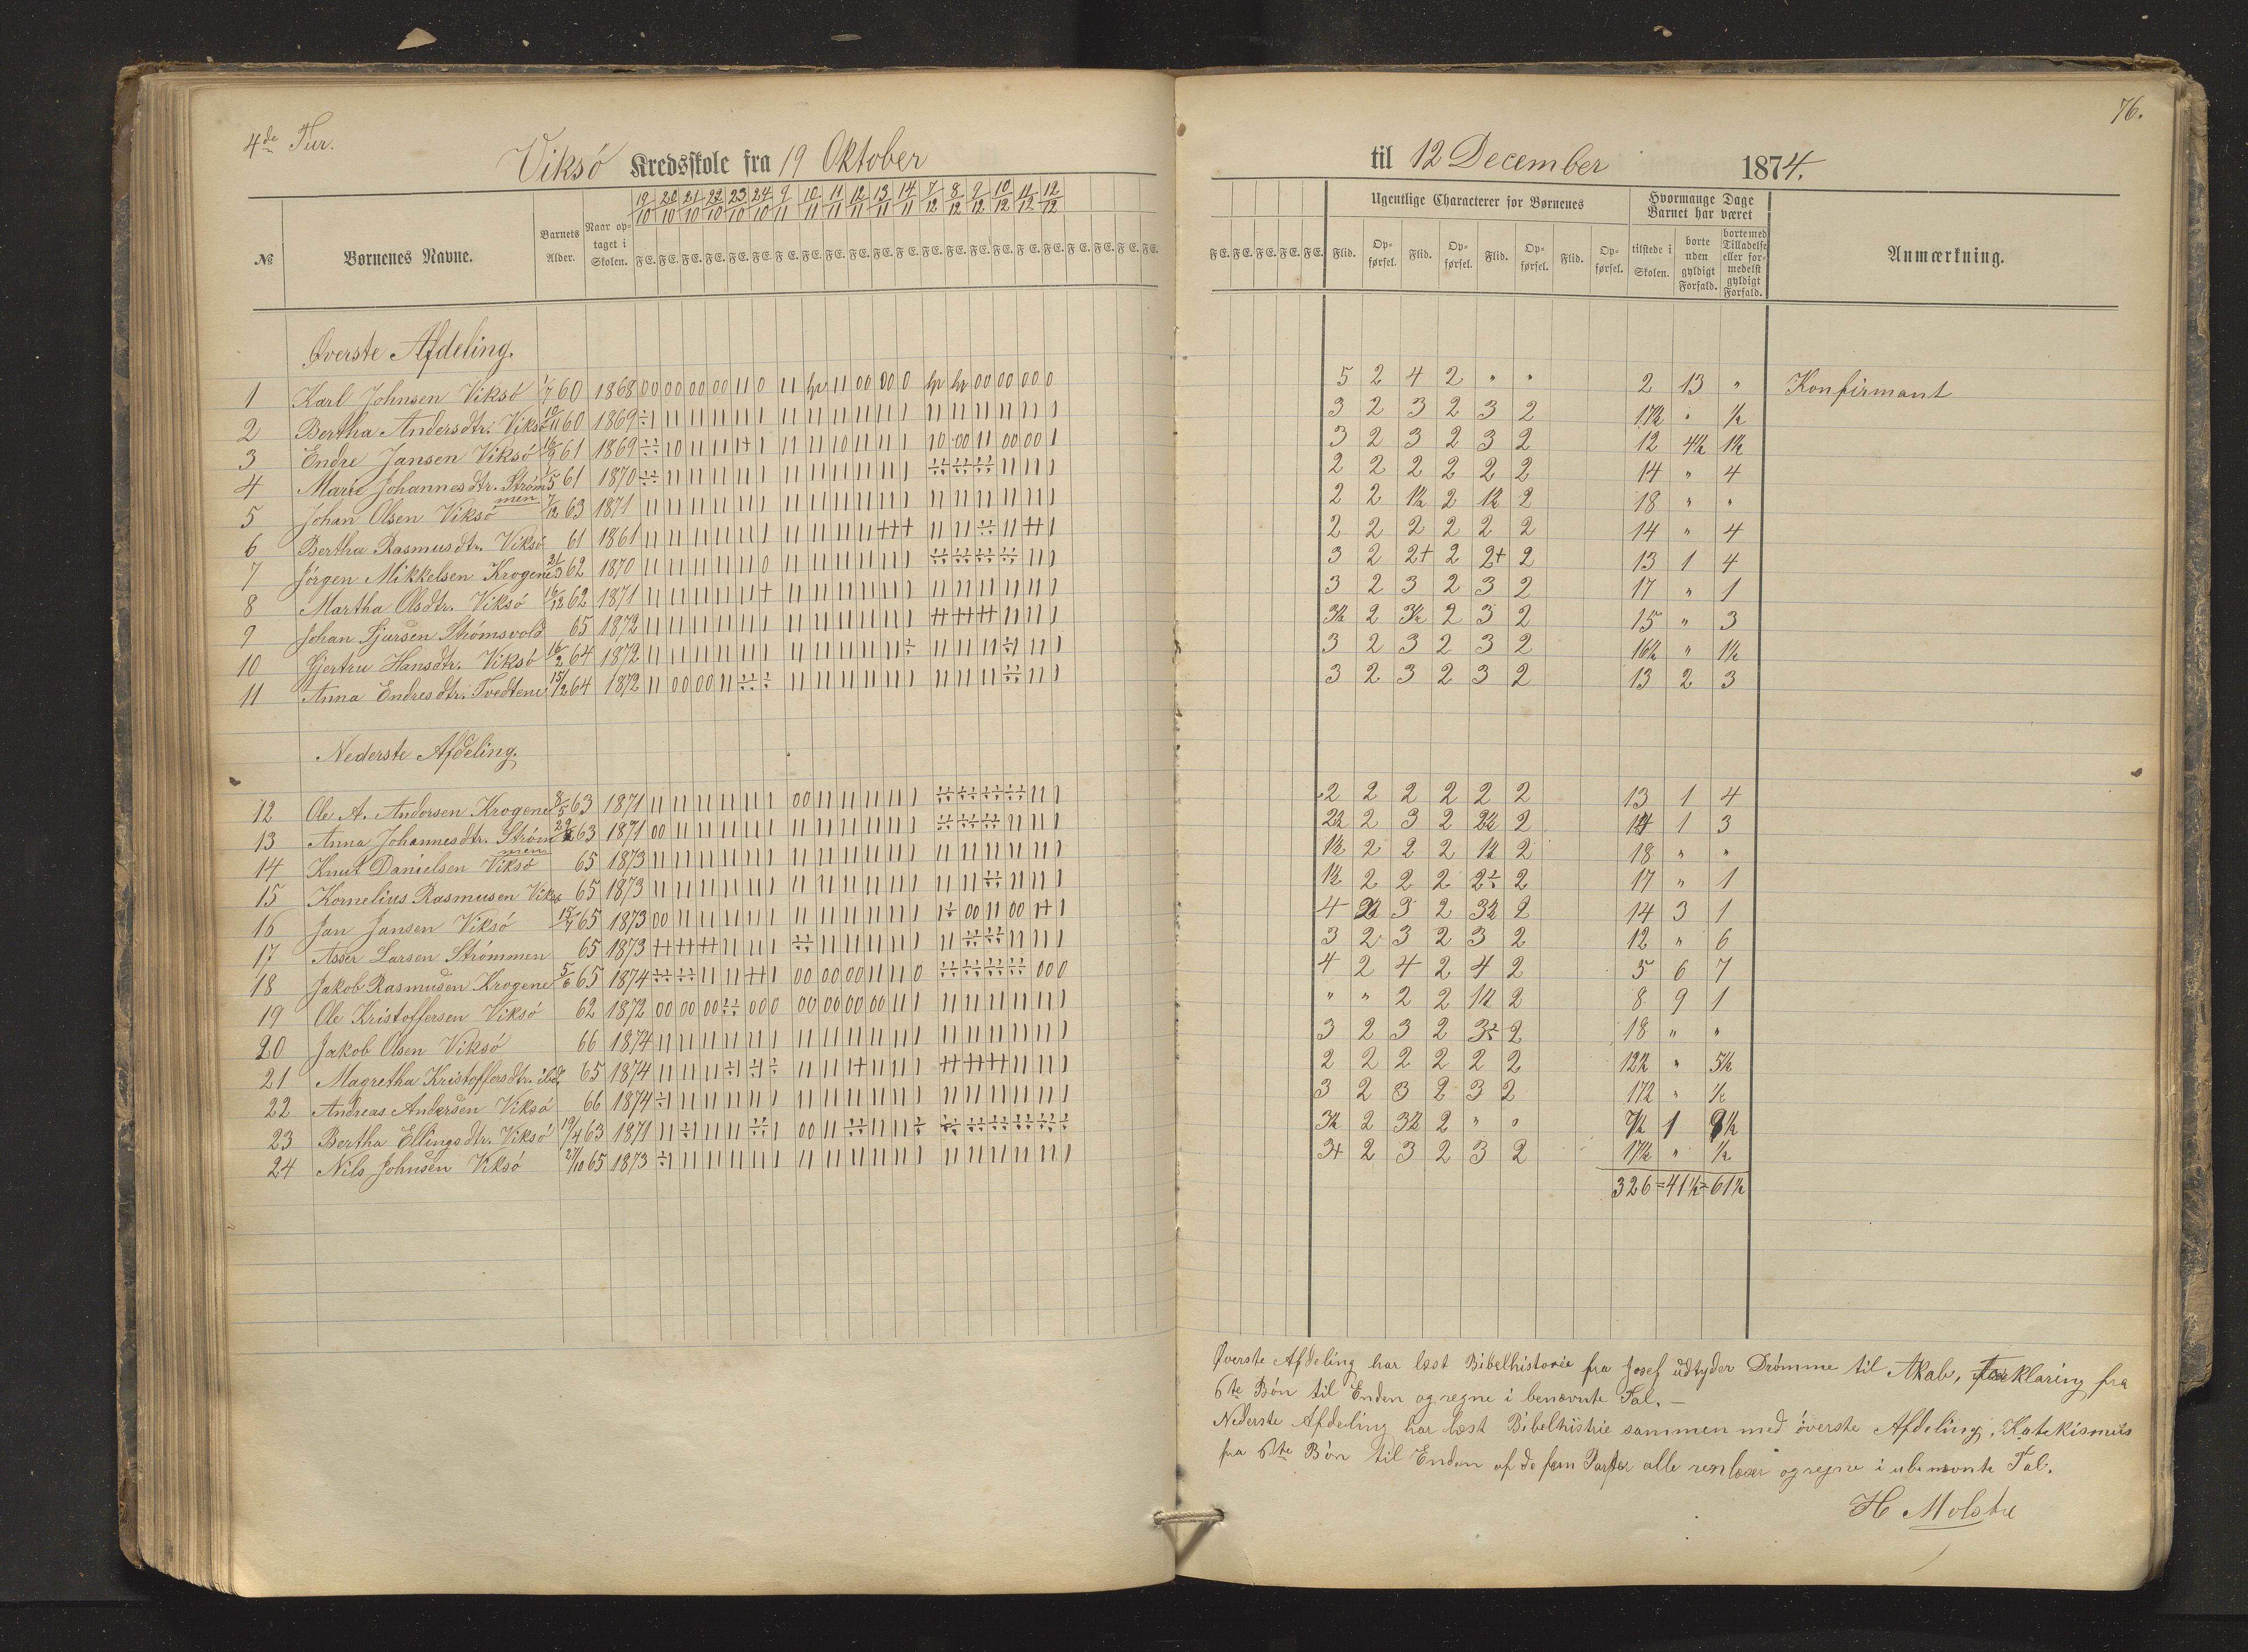 76.
4de Tur.
Viksö Kredsskole fra 19 Oktober til 12 December 1874.
№ Børnenes Navne. Barnets Alder. Naar optaget i Skolen. 19/10 20/10 21/10 22/10 23/10 24/10 9/11 10/11 11/11 12/11 13/11 14/11 7/12 8/12 9/12 10/12 11/12 12/12
F.E. F.E. F.E. F.E. F.E. F.E. F.E. F.E. F.E. F.E. F.E. F.E. F.E. F.E. F.E. F.E. F.E. F.E. F.E. F.E. F.E. F.E.
Ugentlige Characterer for Børnenes Hvormange Dage Barnet har været
F.E. F.E. F.E. F.E. F.E. Flid. Opførsel. Flid. Opførsel. Flid. Opførsel. Flid. Opførsel. tilstede i Skolen. borte uden gyldigt Forfald. borte med Tilladelse eller formedelst gyldigt Forfald. Anmærkning.
Øverste Afdeling.
1 Karl Johnsen Viksö 1/7 60 1868 5 2 4 2 " " 2 13 " Konfirmant
2 Bertha Andersdtr. Viksö 10/11 60 1869 3 2 3 2 3 2 17½ " ½
3 Endre Jansen Viksö 16/9 61 1869 3 2 3 2 3 2 12 4½ 1½
4 Marie Johannesdtr. Strömmen 1/5 61 1870 2 2 2 2 2 2 14 " 4
5 Johan Olsen Viksö 7/12 63 1871 2 2 1½ 2 1½ 2 18 " "
6 Bertha Rasmusdtr. Viksö 61 1861 2 2 2 2 2 2 14 " 4
7 Jörgen Mikkelsen Krogene 21/3 62 1870 3 2 2+ 2 2+ 2 13 1 4
8 Martha Olsdtr. Viksö 16/12 62 1871 3 2 3 2 3 2 17 " 1
9 Johan Sjursen Strömsvold 65 1872 3½ 2 3½ 2 3 2 15 " 3
10 Gjertru Hansdtr. Viksö 16/2 64 1872 3 2 3 2 3 2 16½ " 1½
11 Anna Endresdtr. Tvedtene 15/12 64 1872 3 2 3 2 3 2 13 2 3
Nederste Afdeling.
12 Ole A. Andersen Krogene 8/5 63 1871 2 2 2 2 2 2 13 1 4
13 Anna Johannesdtr. Strömmen 63 1871 2½ 2 3 2 2½ 2 14 1 3
14 Knut Danielsen Viksö 65 1873 1½ 2 2 2 1½ 2 18 " "
15 Kornelius Rasmusen Viksö 65 1873 1½ 2 2 2 2÷ 2 17 " 1
16 Jan Jansen Viksö 15/7 65 1873 4 3 2 3½ 2 14 3 1
17 Asser Larsen Strömmen 65 1873 3 2 3 2 3 2 12 " 6
18 Jakob Rasmusen Krogene 5/6 65 1874 4 2 4 2 4 2 5 6 7
19 Ole Kristoffersen Viksö 62 1872 " " 2 2 1½ 2 8 9 1
20 Jakob Olsen Viksö 66 1874 3 2 3 2 3÷ 2 18 " "
21 Magretha Kristoffersdtr. ibd. 65 1874 2 2 2 2 2 2 12½ " 5½
22 Andreas Andersen Viksö 66 1874 3 2 3 2 3 2 17½ " ½
23 Bertha Ellingsdtr. Viksö 19/4 63 1871 3½ 2 3½ 2 " " 7½ 1 9½
24 Nils Johnsen Viksö 27/10 65 1873 3+ 2 3 2 3 2 17½ " ½
326=41½=61½
Øverste Afdeling har læst Bibelhistorie fra Josef udtyder Drömme til Akab, Forklaring fra
6te Bön til Enden og regne i benævnte Tal. —
Nederste Afdeling har læst Bibelhistrie sammen med överste Afdeling, Katekismus
fra 6te Bön til Enden af de fem Parter alle renlæser og regne i ubenævnte Tal.
H Molstre